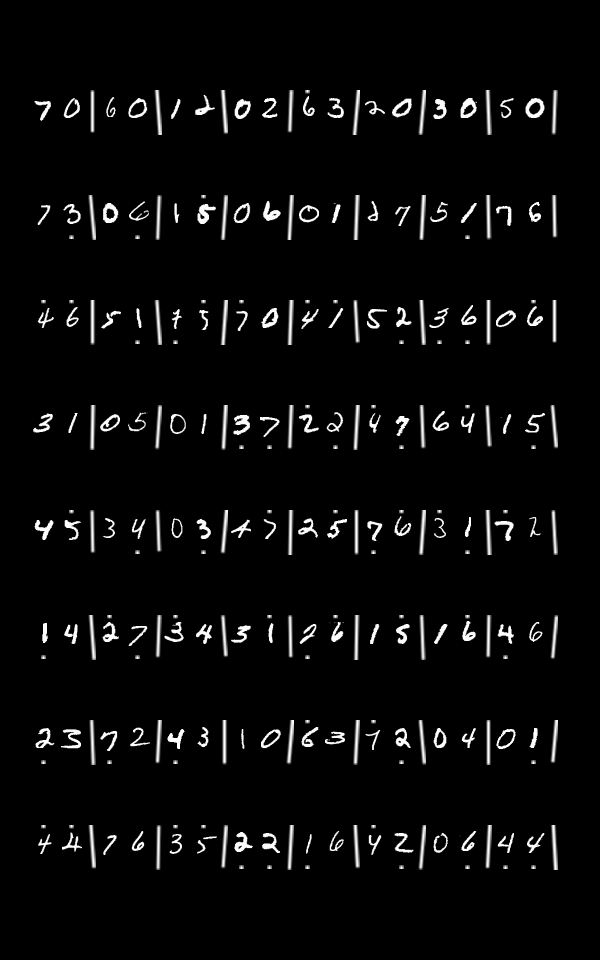 7 0 | 6 0 | 1 2 | 0 2 | 6̇ 3 | 2 0 | 3 0 | 5 0 |
7 3̣ | 0 6̣ | 1 5̇ | 0 6 | 0 1 | 2 7 | 5 1̣ | 7 6 |
4̇ 6̇ | 5 1̣ | 7̣ 5̇ | 7̇ 0 | 4̇ 1̇ | 5 2̣ | 3̣ 6̣ | 0 6̇ |
3 1 | 0 5 | 0 1 | 3̣ 7̣ | 2 2̣ | 4̇ 7̣ | 6 4 | 1 5̣ |
4 5̇ | 3 4̣ | 0 3̣ | 4 7̇ | 2 5̇ | 7̣ 6̇ | 3̇ 1̣ | 7̇ 2 |
1̣ 4 | 2̇ 7̣ | 3̇ 4 | 3 1̇ | 2̣ 6̇ | 1 5̇ | 1 6̇ | 4̣ 6 |
2̣ 3 | 7̣ 2 | 4̣ 3 | 1 0 | 6̇ 3 | 7̇ 2̣ | 0 4 | 0 1̣ |
4̇ 4̇ | 7 6 | 3̇ 5̇ | 2̣ 2̣ | 1̣ 6 | 4̇ 2̣ | 0 6̣ | 4̣ 4̣ |